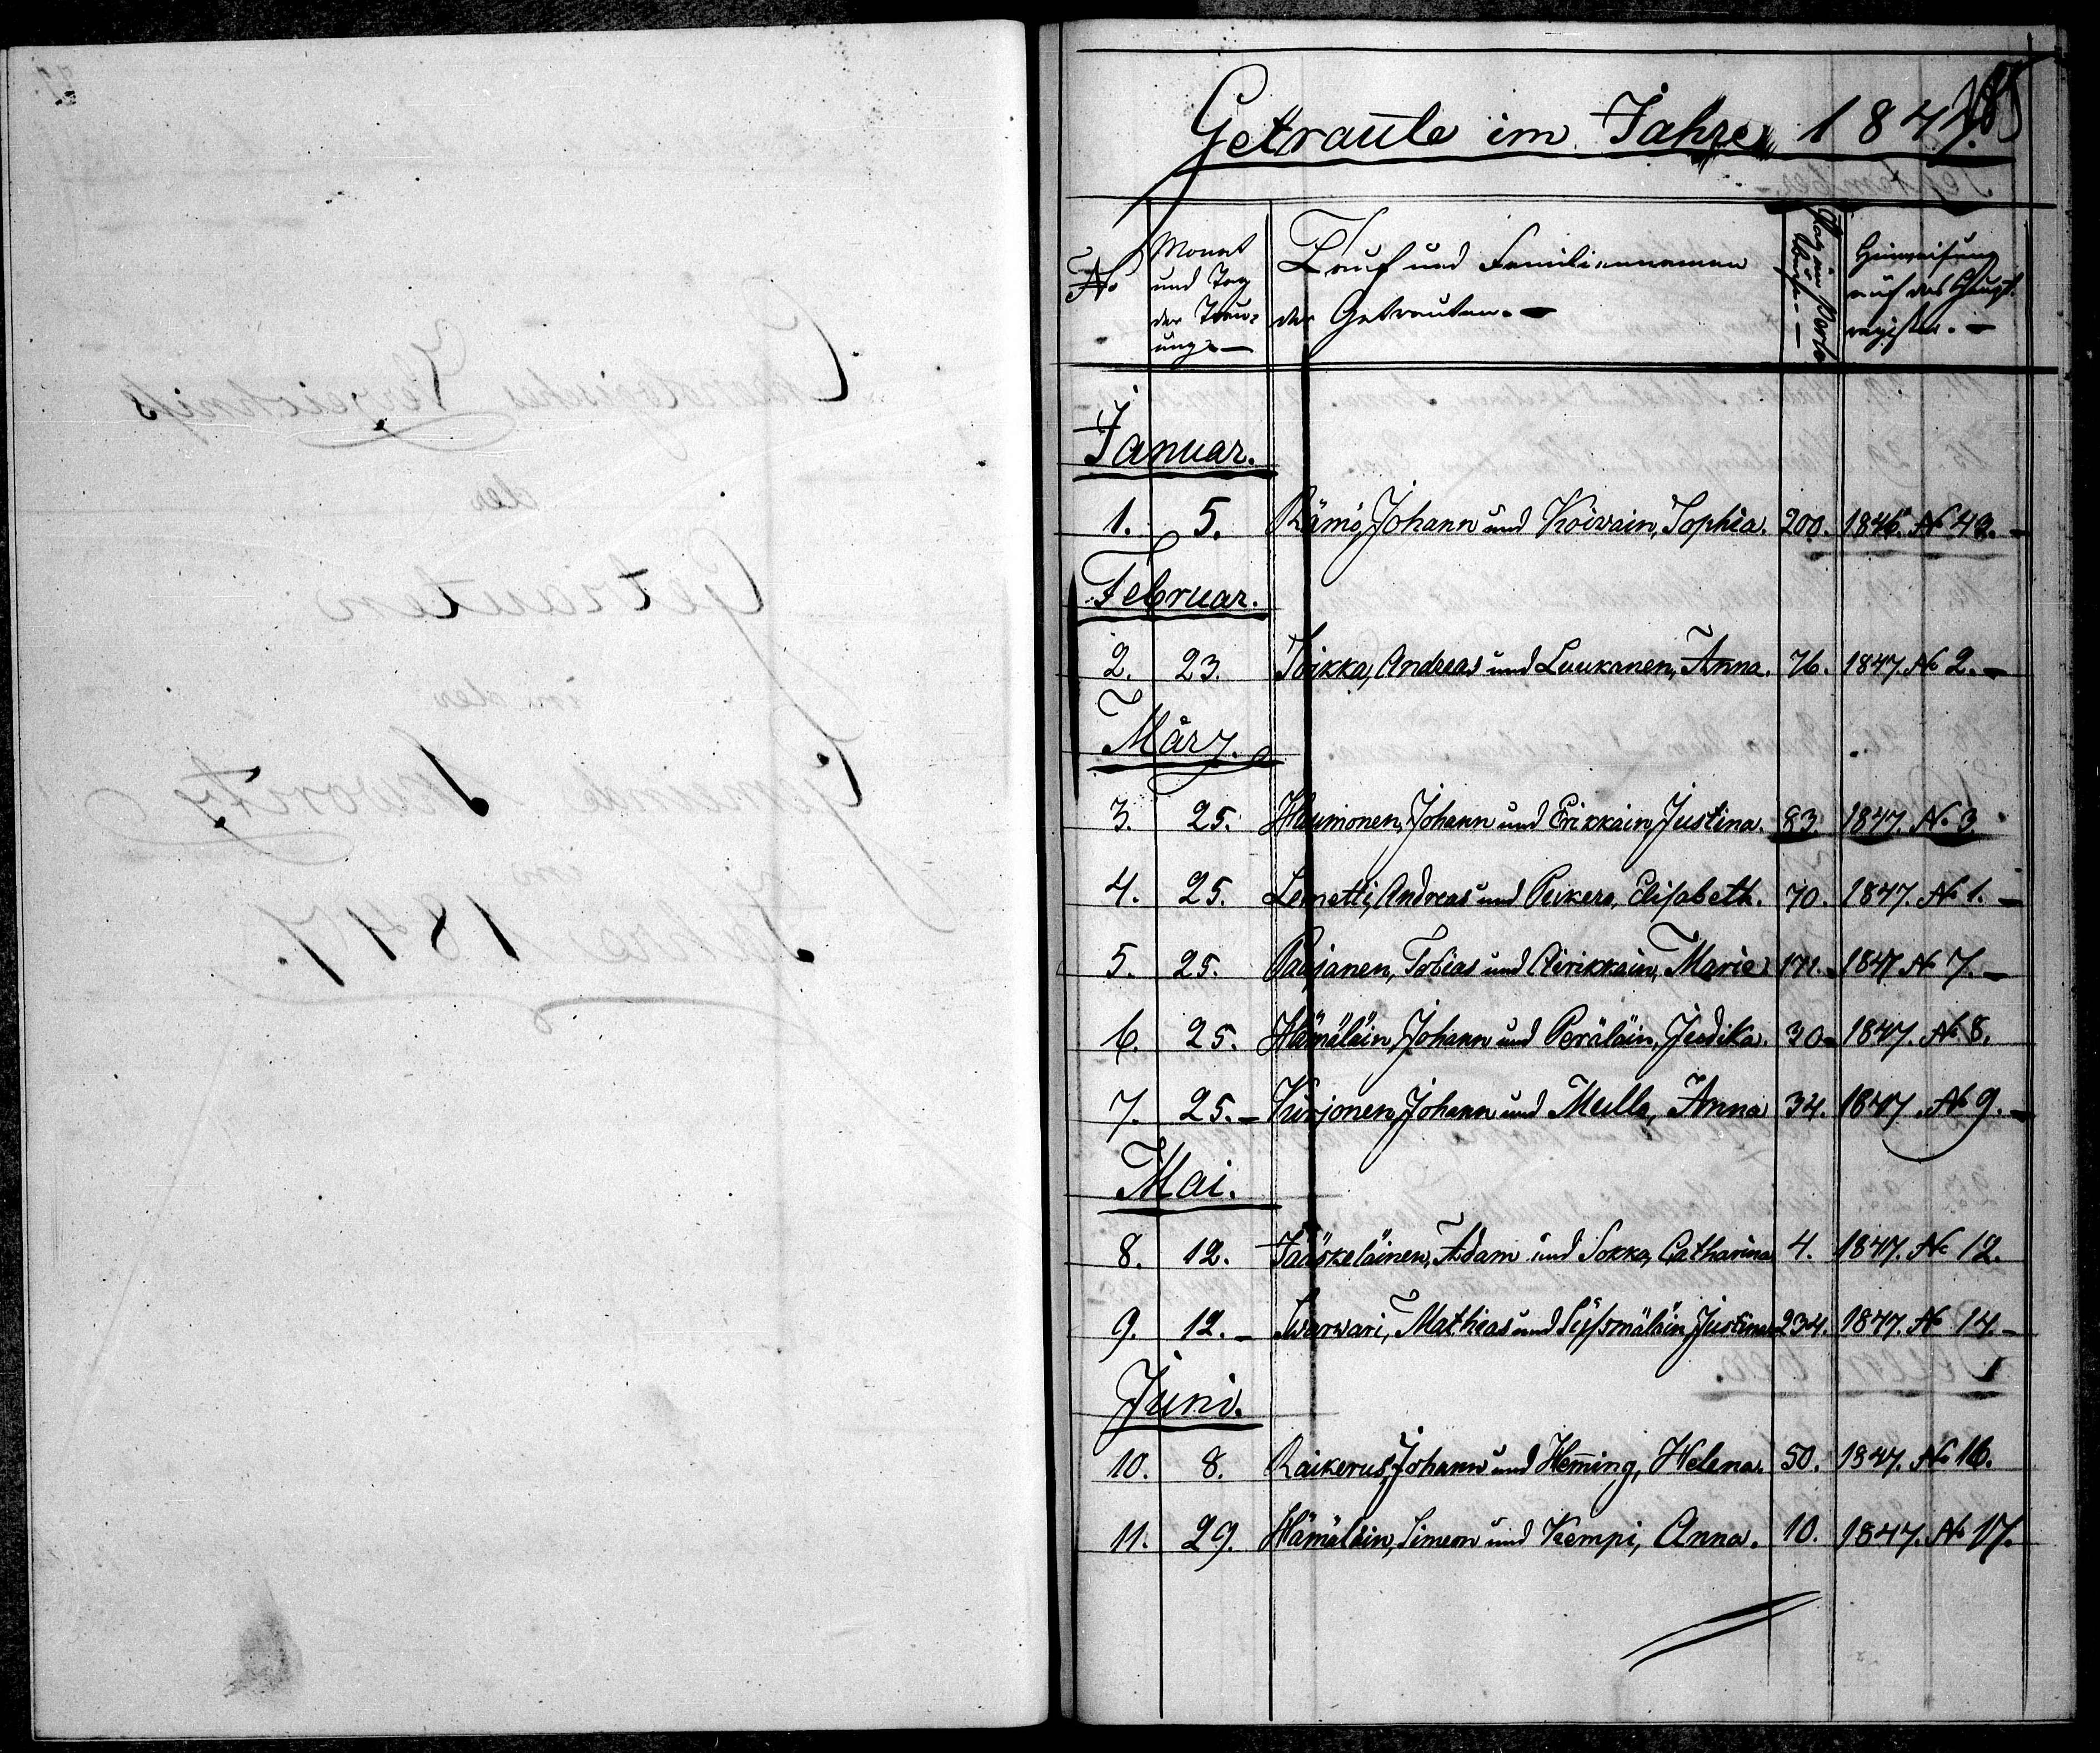 Getraute im Jahre 1847.
No
Monat und Tag der Trauung.
Tauf und Familiennamen der Getrauten.
Pag. im Personalbuche.
Hinweisung auf das Hauptregister.
Januar.
1. 5. Rämö, Johann und Koiwain, Sophia. 200. 1846. No 42.
Februar.
2. 23. Toikka, Andreas und Luukanen, Anna. 76. 1847. No 2.
März.
3. 25. Haumonen, Johann und Erikkain, Justina. 83. 1847. No 3
4. 25. Lemetti, Andreas und Elisabeth. 70. 1847. No 1.
5. 25. Paajanen, Tobias und Airikkain, Marie. 171. 1847. No 7.
6. 25. Hämäläin, Johann und Peräläin, Judika. 30. 1847. No 8.
7. 25. Kurjonen, Johann und Mulla, Anna 34. 1847. No 9.
Mai.
8. 12. Jääskeläinen, Adam und Sokka, Catharina 4. 1847. No 12.
9. 12. Mathias und Justina 234. 1847. No 14.
Juni.
10. 8. Raikerus, Johann und Hem̄ing, Helena. 50. 1847. No 16.
11. 29. Hämäläin, Simeon und Kempi, Anna. 10. 1847. No 17.